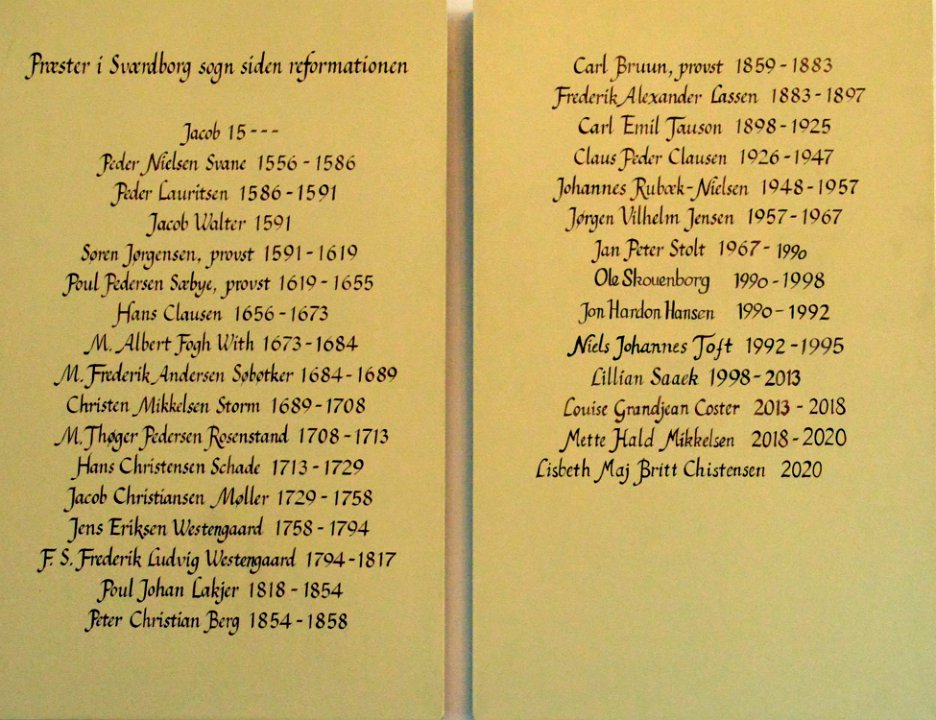 Præster i Sværdborg sogn siden reformationen
Jacob 15---
Peder Nielsen Svane 1556 - 1586
Peder Lauritsen 1586 - 1591
Jacob Walter 1591
Søren Jørgensen, provst 1591 - 1619
Poul Pedersen Sæbye, provst 1619 - 1655
Hans Clausen 1656 - 1673
M. Albert Fogh With 1673 - 1684
M. Frederik Andersen Søbøtker 1684 - 1689
Christen Mikkelsen Storm 1689 - 1708
M. Thøger Pedersen Rosenstand 1708 - 1713
Hans Christensen Schade 1713 - 1729
Jacob Christiansen Møller 1729 - 1758
Jens Eriksen Westengaard 1758 - 1794
F. S. Frederik Ludvig Westengaard 1794 - 1817
Poul Johan Lakjer 1818 - 1854
Peter Christian Berg 1854 - 1858
Carl Bruun, provst 1859 - 1883
Frederik Alexander Lassen 1883 - 1897
Carl Emil Tauson 1898 - 1925
Claus Peder Clausen 1926 - 1947
Johannes Rubæk-Nielsen 1948 - 1957
Jørgen Vilhelm Jensen 1957 - 1967
Jan Peter Stolt 1967 - 1990
Ole Skouenborg 1990 - 1998
Jon Hardon Hansen 1990 - 1992
Niels Johannes Toft 1992 - 1995
Lillian Saaek 1998 - 2013
Louise Grandjean Coster 2013 - 2018
Mette Hald Mikkelsen 2018 - 2020
Lisbeth Maj Britt Chistensen 2020